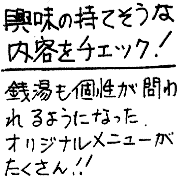 興味の持てそうな
内容をチェック!
銭湯も個性が問わ
れるようになった.
オリジナルメニューが
たくさん!!